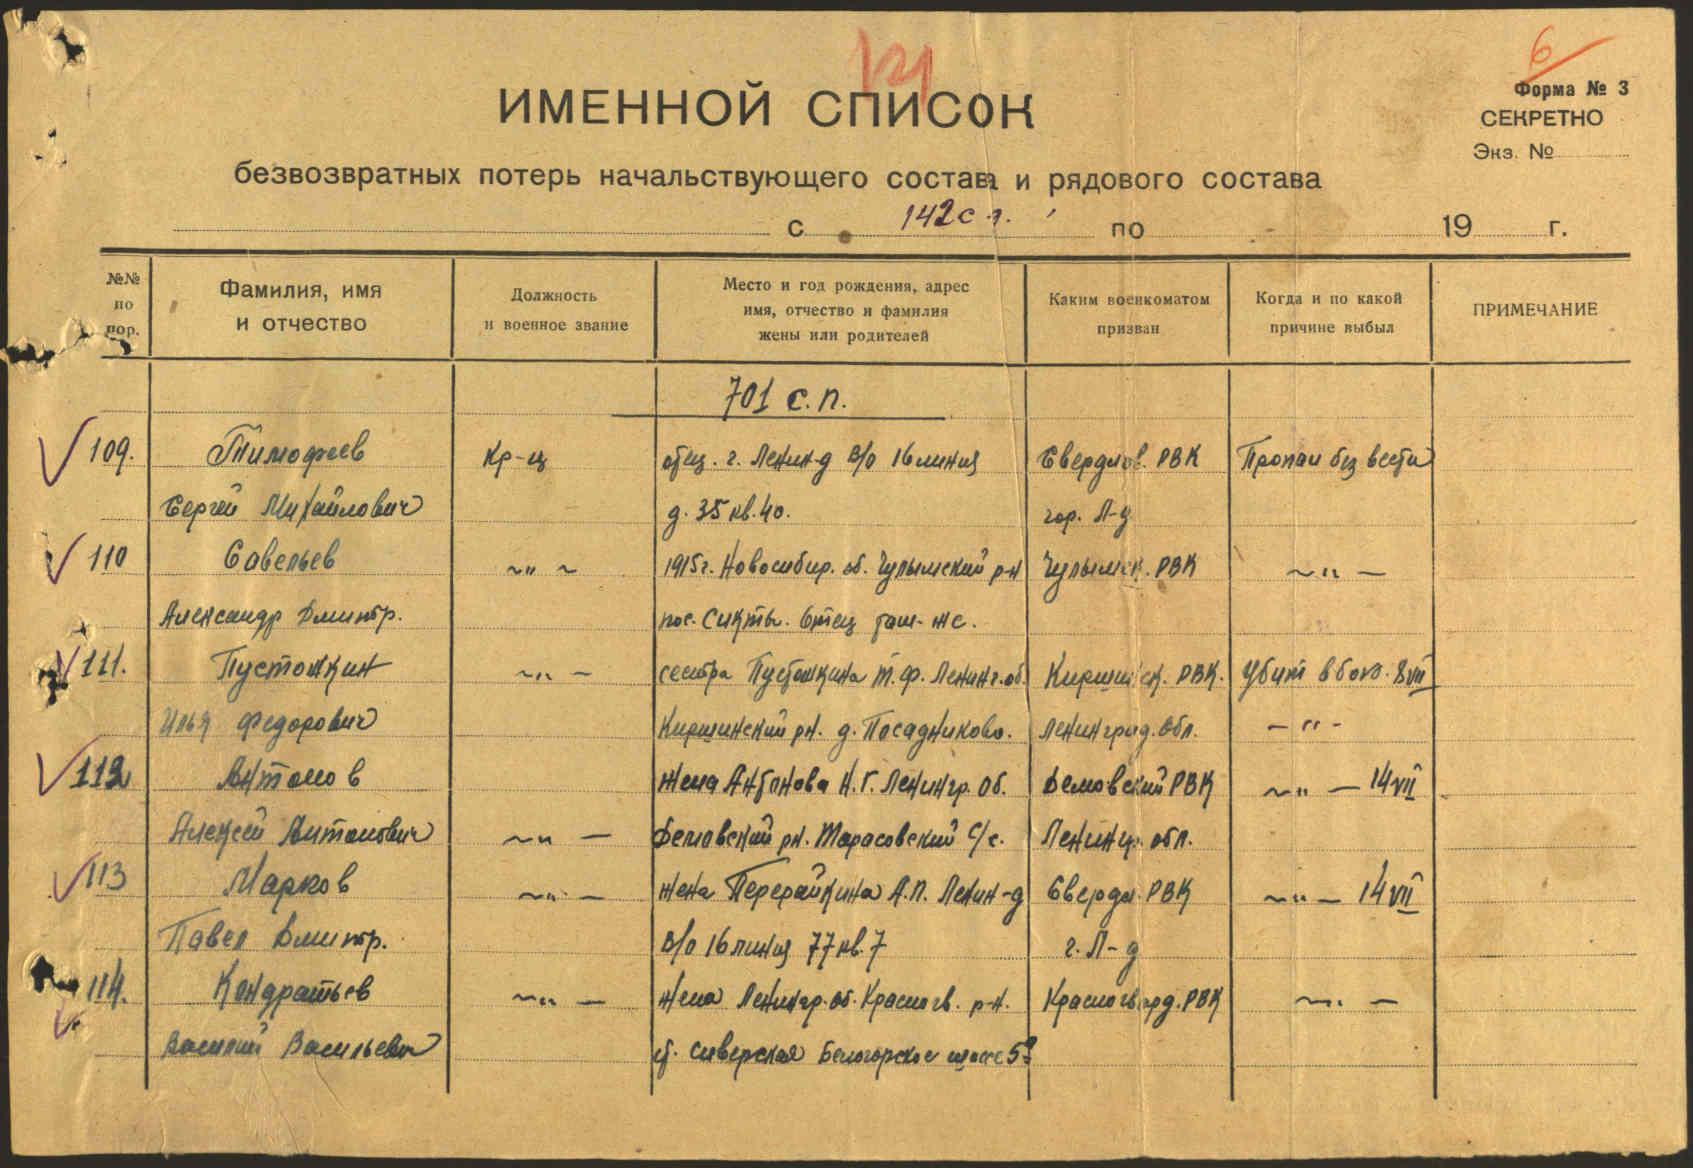 6
121
Форма № 3
ИМЕННОЙ СПИСОК
СЕКРЕТНО
Экз. №
безвозвратных потерь начальствующего состава и рядового состава
с 142 с.д. по 19 г.
№№ по пор.
Фамилия, имя и отчество
Должность и военное звание
Место и год рождения, адрес имя, отчество и фамилия жены или родителей
Каким военкоматом призван
Когда и по какой причине выбыл
ПРИМЕЧАНИЕ
701 с.п.
109. Тимофеев Кр-ц отец. г. Ленин-д В/О 16 линия Свердлов. РВК Пропал без вести
Сергей Михайлович д. 35 кв. 40. гор. Л-д
110 Савельев ~"~ 1915 г. Новосибир. об. Чулымский р-н Чулымск. РВК ~"—
Александр Дмитр. пос. Сикты. Отец там-же.
111. Пустошкин ~"— сестра Пустошкина Т.Ф. Ленинг. об. Киришск. РВК. Убит в бою. 8 VII
Илья Федорович Киришинский рн. д. Посадниково. Ленинград. Обл. —"-
112 Антонов жена Антонова Н.Г. Ленингр. Об. Демовский РВК ~"— 14 VII
Алексей Антонович ~"— Демавский рн. Тарасовский С/с. Ленингр. обл.
113 Марков ~"— жена А.П. Ленин-д Свердл. РВК ~"— 14 VII
Павел Дмитр. В/О 16 линия 77 кв. 7 г. Л-д
114. Кондратьев ~"— жена Ленингр. об. Красногв. р-н. Красногвард. РВК ~"—
Василий Васильевич ст. Сиверская Белогорское шоссе